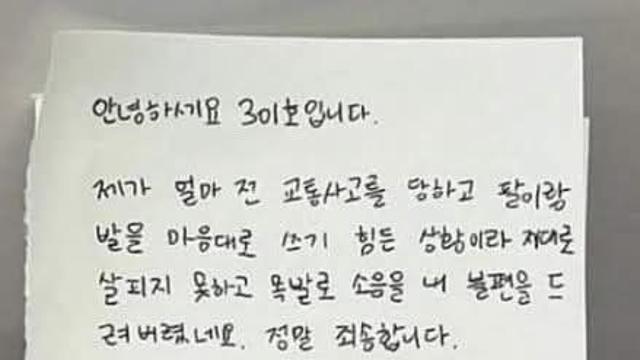 안녕하세요 301호입니다.
제가 얼마 전 교통사고를 당하고 팔이랑
발을 마음대로 쓰기 힘든 상황이라 제대로
살피지 못하고 목발로 소음을 내 불편을 드
려버렸네요. 정말 죄송합니다.